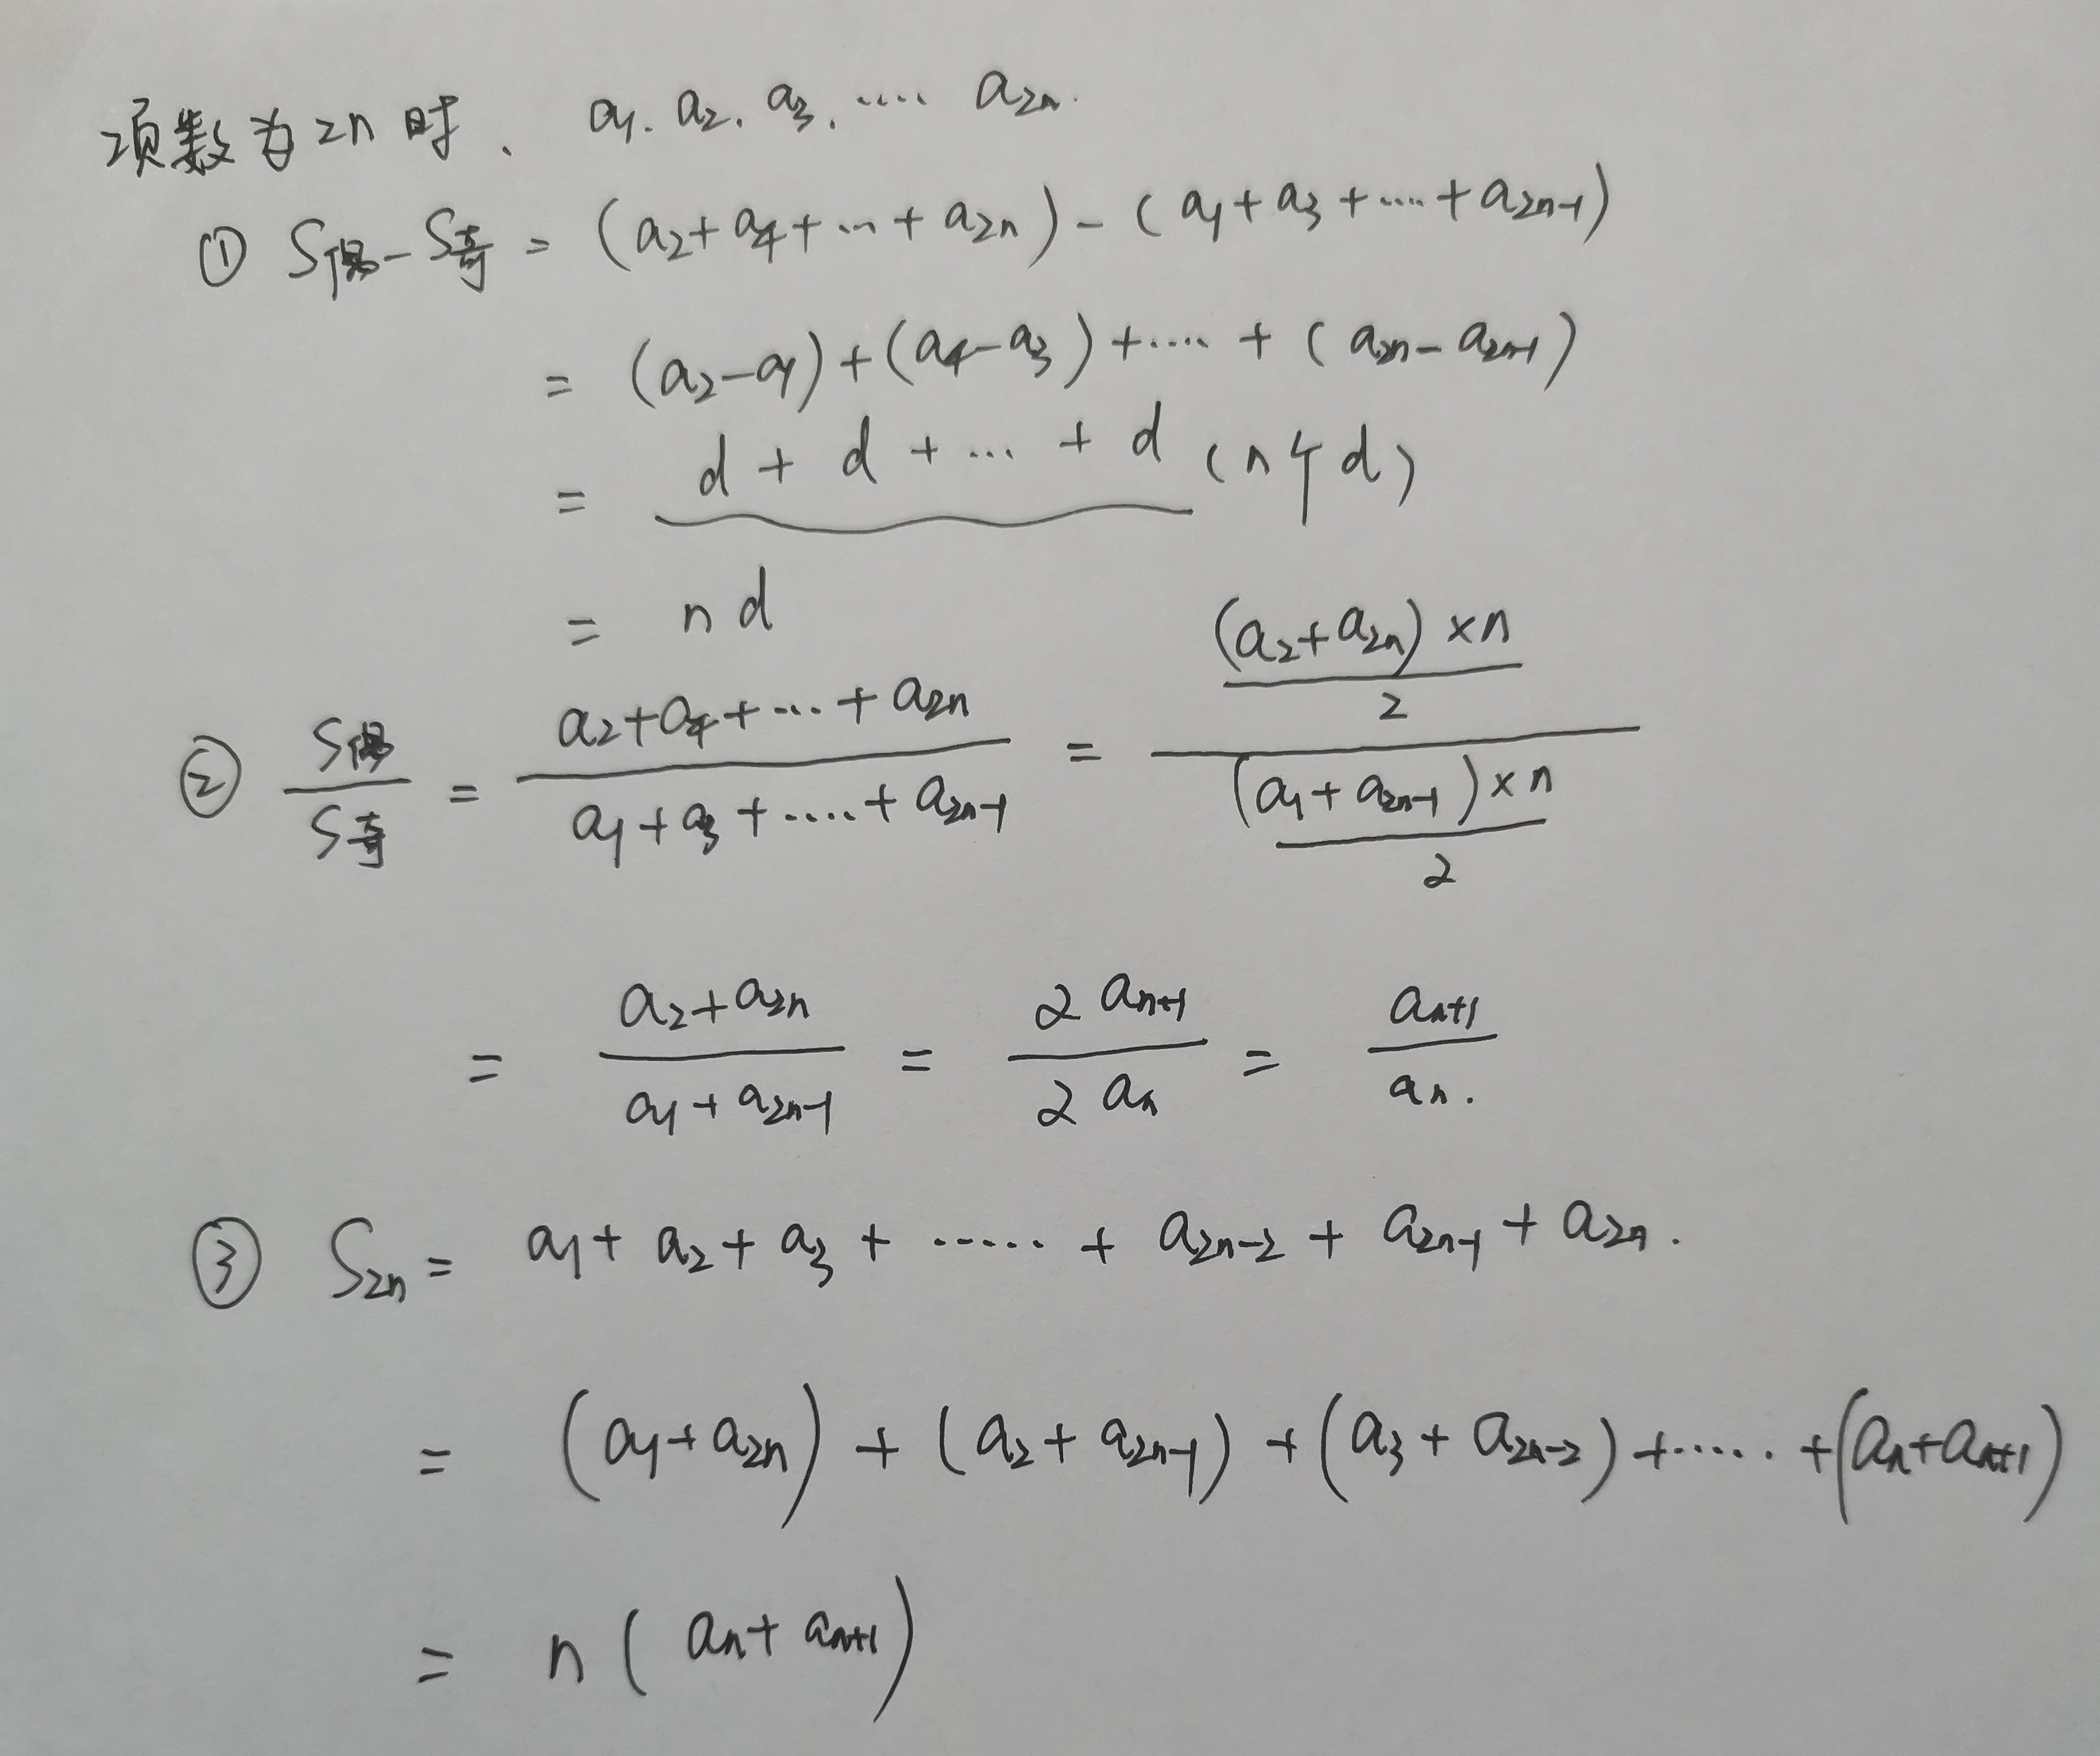 项数为2n时、 a₁. a₂. a₃. .... a₂ₙ.
① S偶-S奇 = (a₂+a₄+...+a₂ₙ)-(a₁+a₃+....+a₂ₙ₋₁)
= (a₂-a₁)+(a₄-a₃)+....+(a₂ₙ-a₂ₙ₋₁)
= d+d+...+d (n个d)
= nd
② S偶/S奇 = (a₂+a₄+...+a₂ₙ)/(a₁+a₃+....+a₂ₙ₋₁) = ((a₂+a₂ₙ)×n/2)/((a₁+a₂ₙ₋₁)×n/2)
= (a₂+a₂ₙ)/(a₁+a₂ₙ₋₁) = 2aₙ₊₁/2aₙ = aₙ₊₁/aₙ.
③ S₂ₙ = a₁+a₂+a₃+.....+a₂ₙ₋₂+a₂ₙ₋₁+a₂ₙ.
= (a₁+a₂ₙ)+(a₂+a₂ₙ₋₁)+(a₃+a₂ₙ₋₂)+.....+(aₙ+aₙ₊₁)
= n(aₙ+aₙ₊₁)